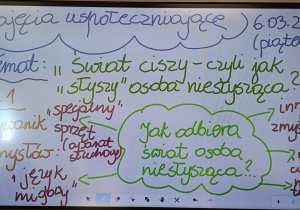 zajęcia uspołeczniające
6.03.2
(piąte
emat: "Świat ciszy - czyli jak
"słyszy" osoba niesłysząca?
1
"specjalny"
sprzęt
(aparat
słuchowy)
mysłów:
"język
migowy"
Jak odbiera
świat osoba
niesłysząca...?
in
zmys